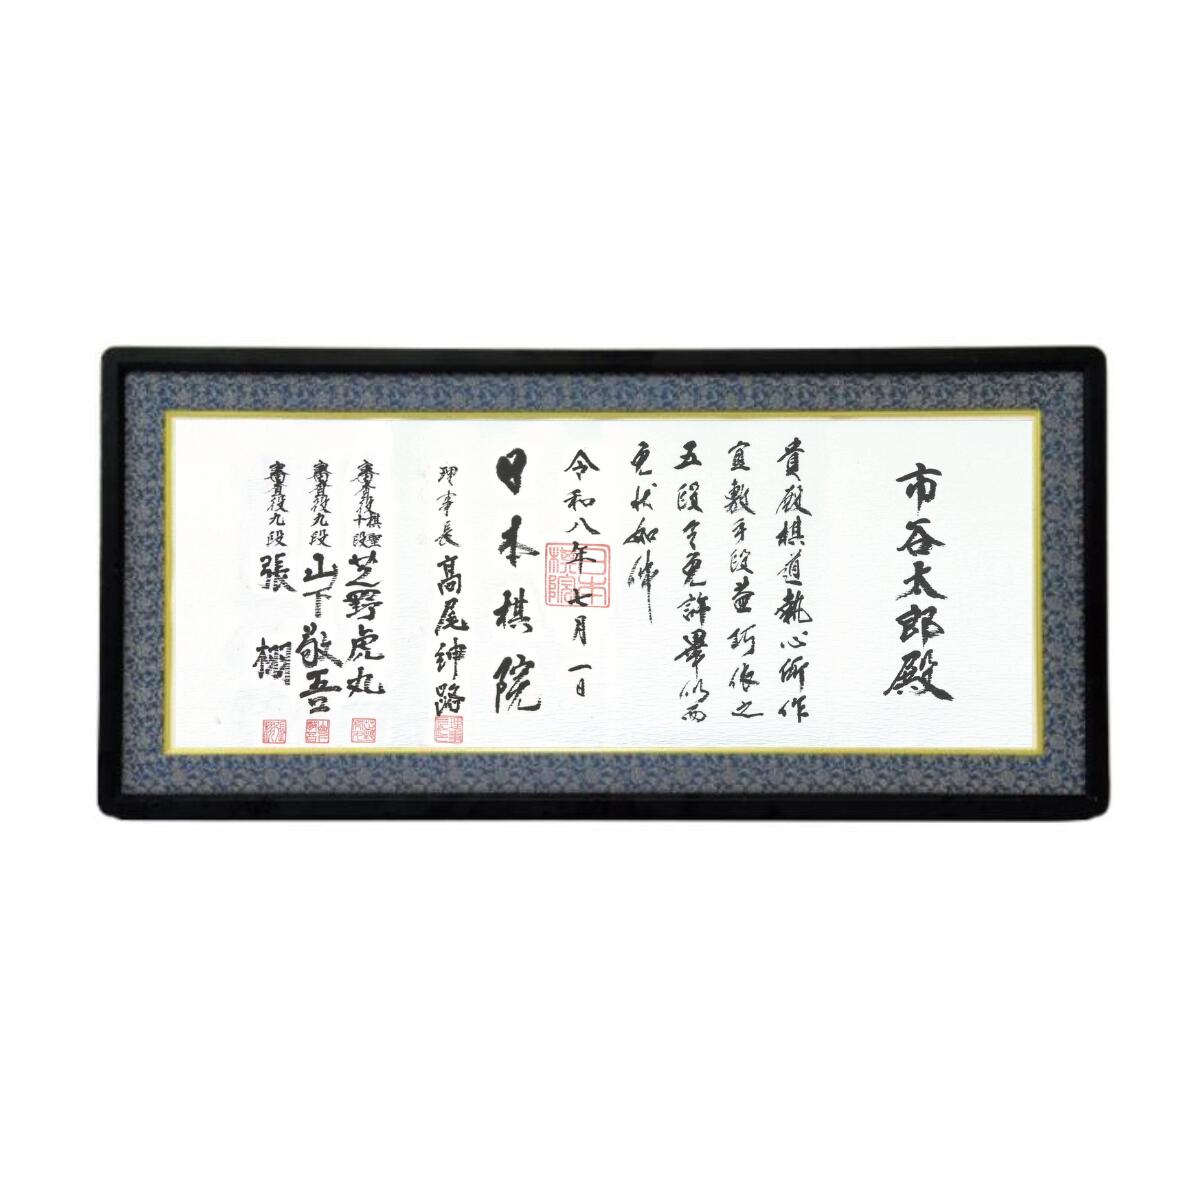 市谷太郎殿
貴殿棋道執心所作
宜敷手段依之
五段令免許畢仍而
免状如件
令和八年七月一日
日本棋院
理事長 高尾紳路
審査役 棋聖 十段 芝野虎丸
審査役九段 山下敬吾
審査役九段 張 栩